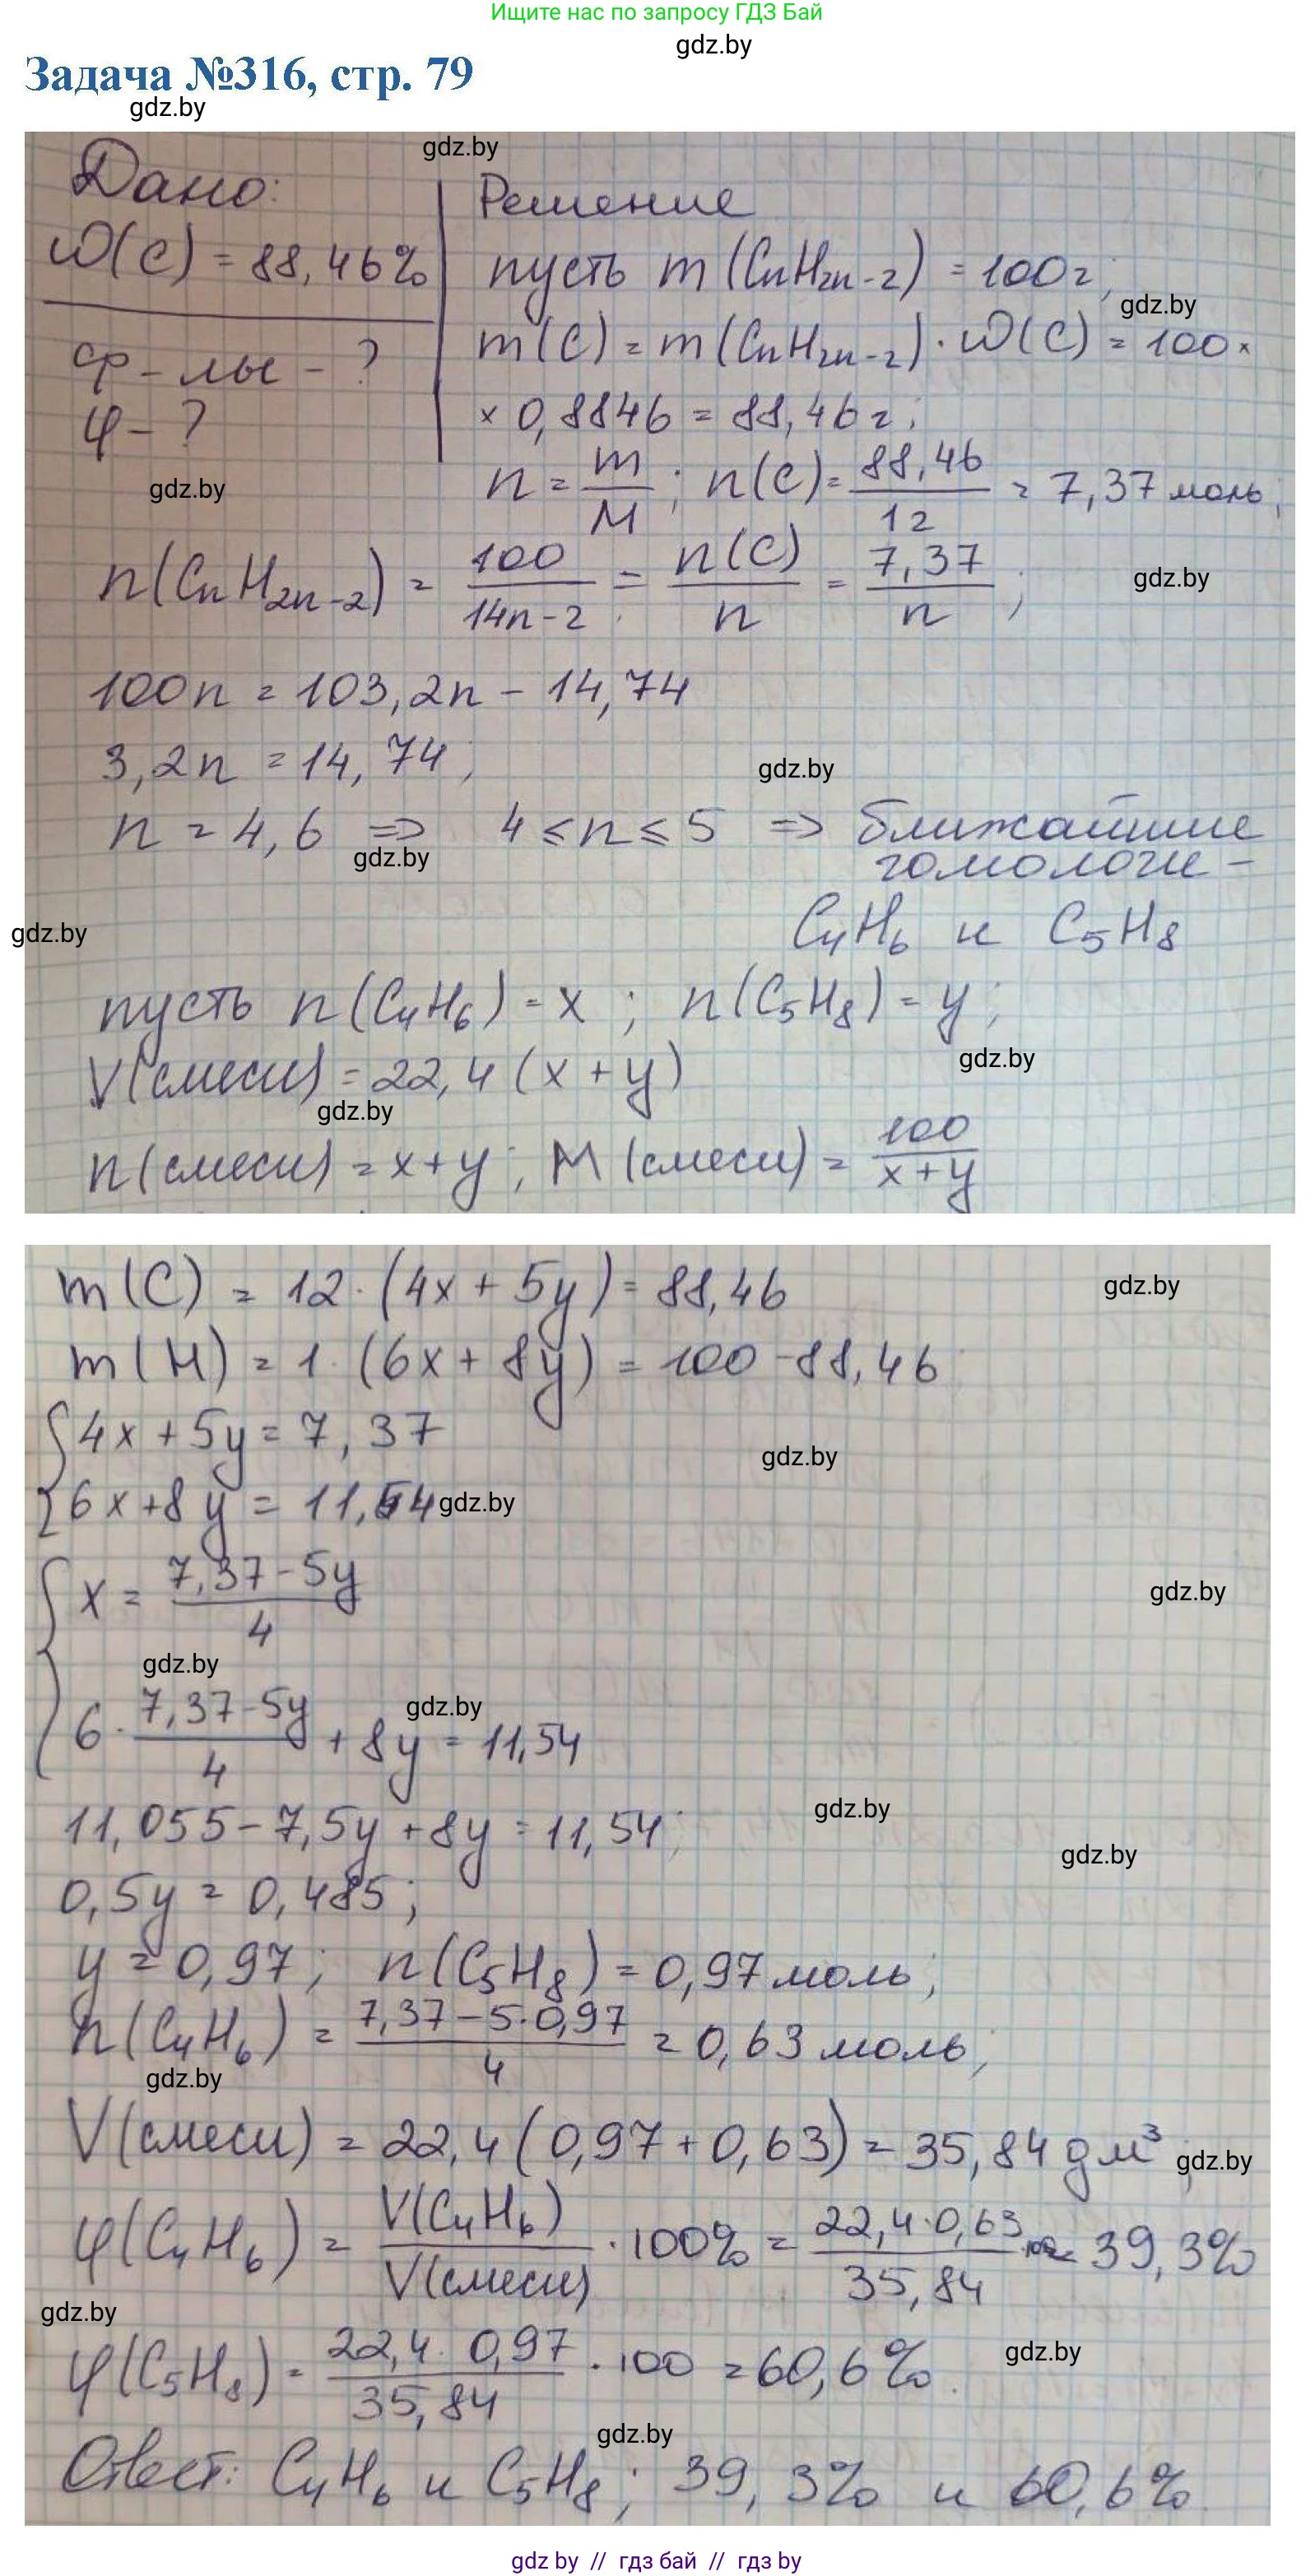 Ищите нас по запросу ГДЗ Бай
gdz.by
Задача №316, стр. 79
gdz.by
gdz.by
Дано:
Решение
ω(C) = 88,46%
пусть m (CnH2n-2) = 100г;
gdz.by
ф-лы - ?
m(C) = m(CnH2n-2) · ω(C) = 100 ×
φ - ?
× 0,8846 = 88,46 г;
gdz.by
n = m/M ; n(C) = 88,46/12 = 7,37 моль;
n(CnH2n-2) = 100/14n-2 = n(C)/n = 7,37/n ;
gdz.by
100n = 103,2n - 14,74
3,2n = 14,74;
gdz.by
n = 4,6 => 4 ≤ n ≤ 5 => ближайшие
гомологи -
gdz.by
gdz.by
C4H6 и C5H8
пусть n(C4H6) = x ; n(C5H8) = y;
gdz.by
V(смеси) = 22,4 (x + y)
gdz.by
n(смеси) = x+y ; M (смеси) = 100/x+y
m(C) = 12 · (4x + 5y) = 88,46
gdz.by
m(H) = 1 · (6x + 8y) = 100 - 88,46
{4x + 5y = 7,37
gdz.by
{6x + 8y = 11,54
gdz.by
{x = 7,37 - 5y/4
gdz.by
gdz.by
{6 · 7,37 - 5y/4 + 8y = 11,54
gdz.by
11,055 - 7,5y + 8y = 11,54;
gdz.by
gdz.by
0,5y = 0,485;
y = 0,97; n(C5H8) = 0,97 моль;
n(C4H6) = 7,37 - 5·0,97/4 = 0,63 моль;
gdz.by
V(смеси) = 22,4 (0,97 + 0,63) = 35,84 дм³;
gdz.by
φ(C4H6) = V(C4H6)/V(смеси) · 100% = 22,4·0,63/35,84 ·100 = 39,3%
gdz.by
φ(C5H8) = 22,4 · 0,97/35,84 · 100 = 60,6%.
gdz.by
gdz.by
Ответ: C4H6 и C5H8; 39,3% и 60,6%.
gdz by // гдз бай // гдз by